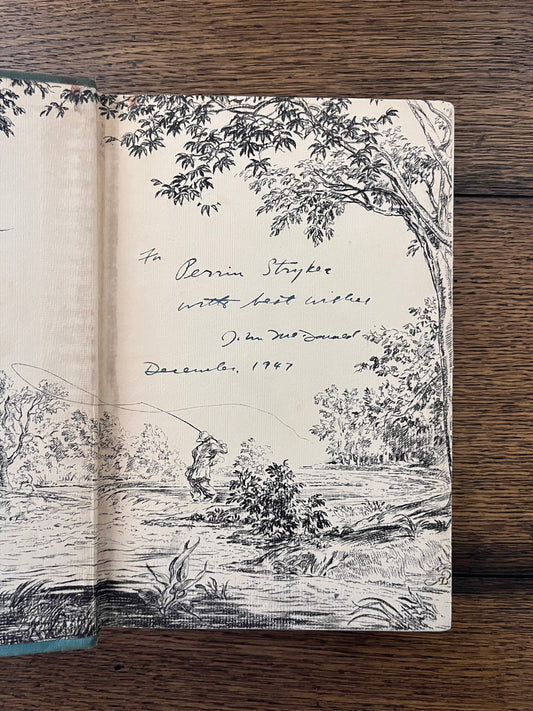 For Perrin Stryker
with best wishes
John McDonald
December, 1947